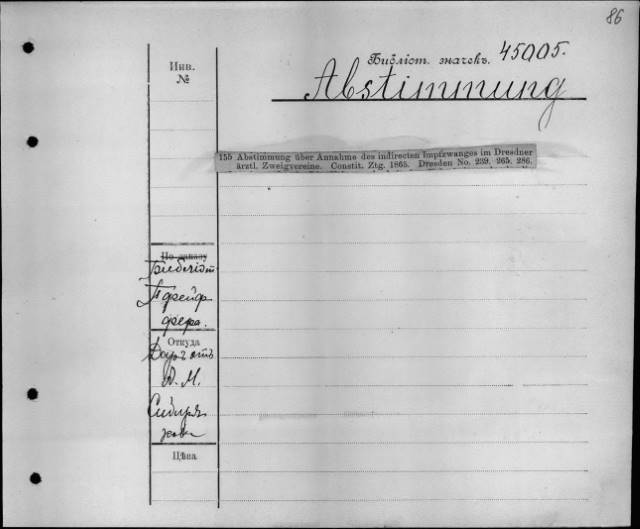 86
Библіот. значекъ. 45005.
Инв.
№
Abstimmung
155 Abstimmung über Annahme des indirecten Impfzwanges im Dresdner
ärztl. Zweigvereine. Constit. Ztg. 1865. Dresden No. 259. 265. 286.
По заказу
Библіот
Пфейф
фера.
Откуда
Даръ отъ
М.
Сибиря
кова
Цѣна